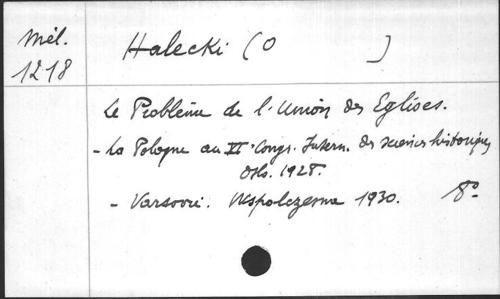 Mél.
1218
Halecki (O )
Le Problème de l'Union des Eglises.
- La Pologne au VIe Congr. Intern. des sciences historiques
Oslo. 1928.
- Varsovie. Wspolczesna 1930. 8°